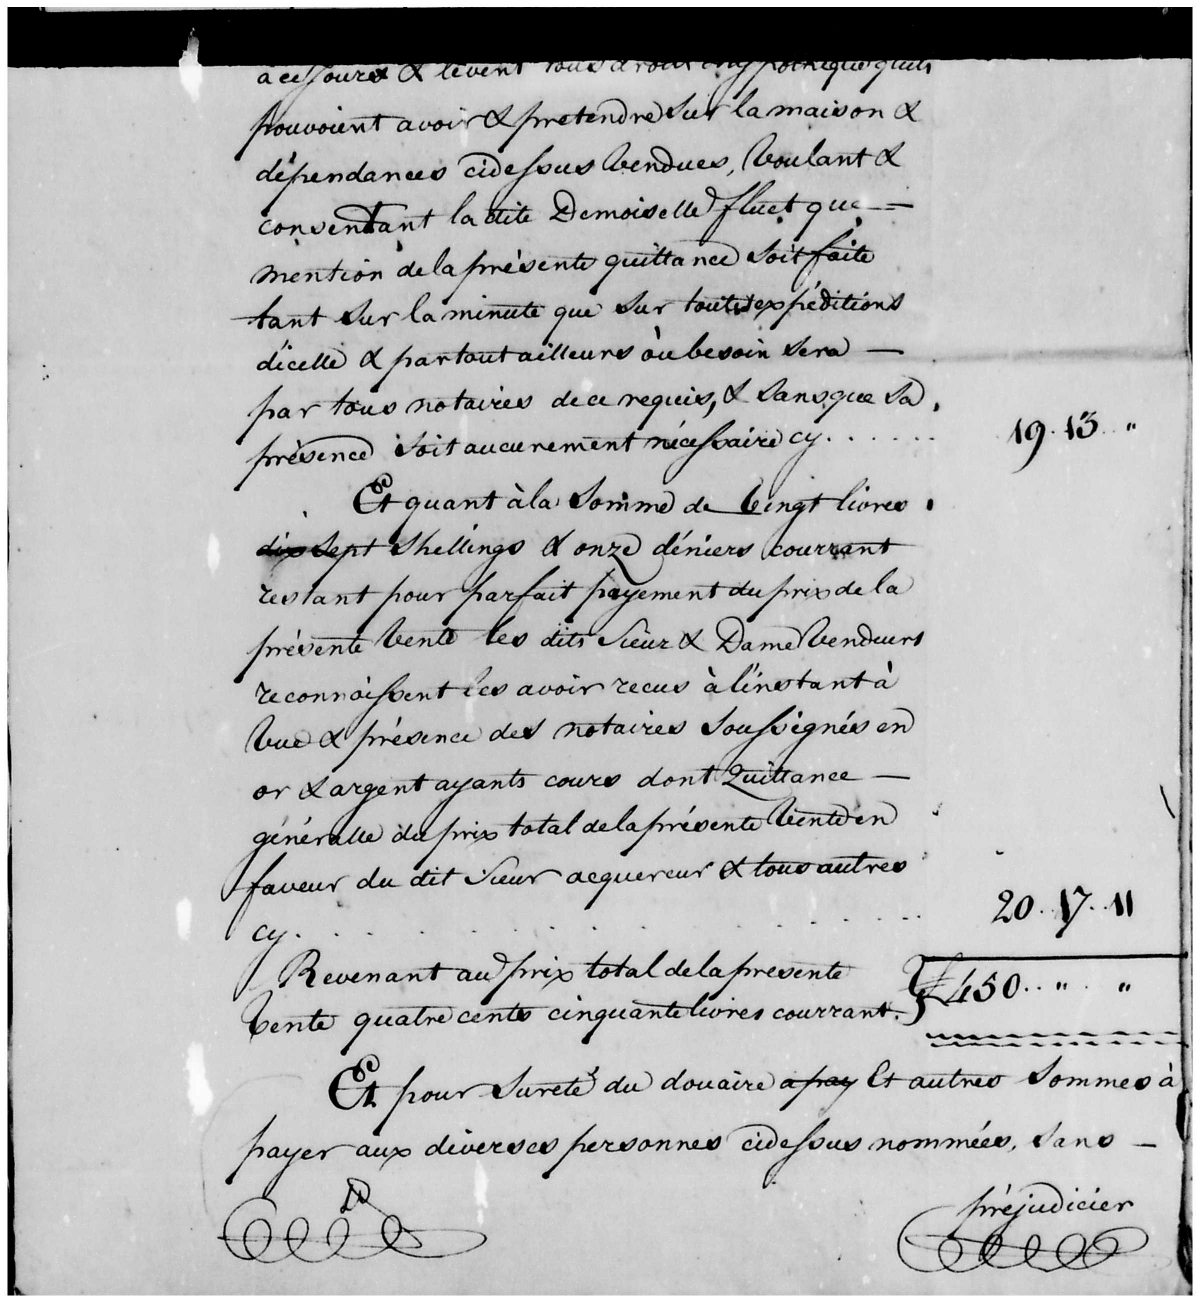 à ce jour & levent tous droits d'hypotheque qu'ils
pouvoient avoir & pretendre sur la maison &
dépendances cidessus vendues, voulant &
consentant la dite Demoiselle fluet que —
mention de la présente quittance soit faite
tant sur la minute que sur toutes expéditions
d'icelle & partout ailleurs où besoin sera —
par tous notaires de ce requis, & sans que sa
présence soit aucunement nécessaire cy. . . . . . . 19..13.. "
Et quant à la somme de vingt livres
dix sept shellings & onze déniers courrant
restant pour parfait payement du prix de la
présente vente les dits Sieur & Dame Vendeurs
reconnoissent les avoir recus à l'instant à
vue & présence des notaires soussignés en
or & argent ayants cours dont Quittance —
généralle du prix total de la présente vente en
faveur du dit Sieur acquereur & tous autres
cy. . . . . . . . . . . . . 20..17..11
Revenant au prix total de la presente
vente quatre cents cinquante livres courrant. } £450.. " .. "
Et pour sureté du douaire a pay Et autres sommes à
payer aux diverses personnes cidessus nommées, sans —
préjudicier